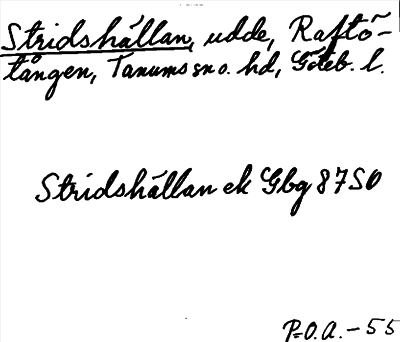 Stridshällan, udde, Raftö-
tången, Tanums sn o. hd, Göteb. l.
Stridshällan ek Gbg 87SO
P.O.A. - 55